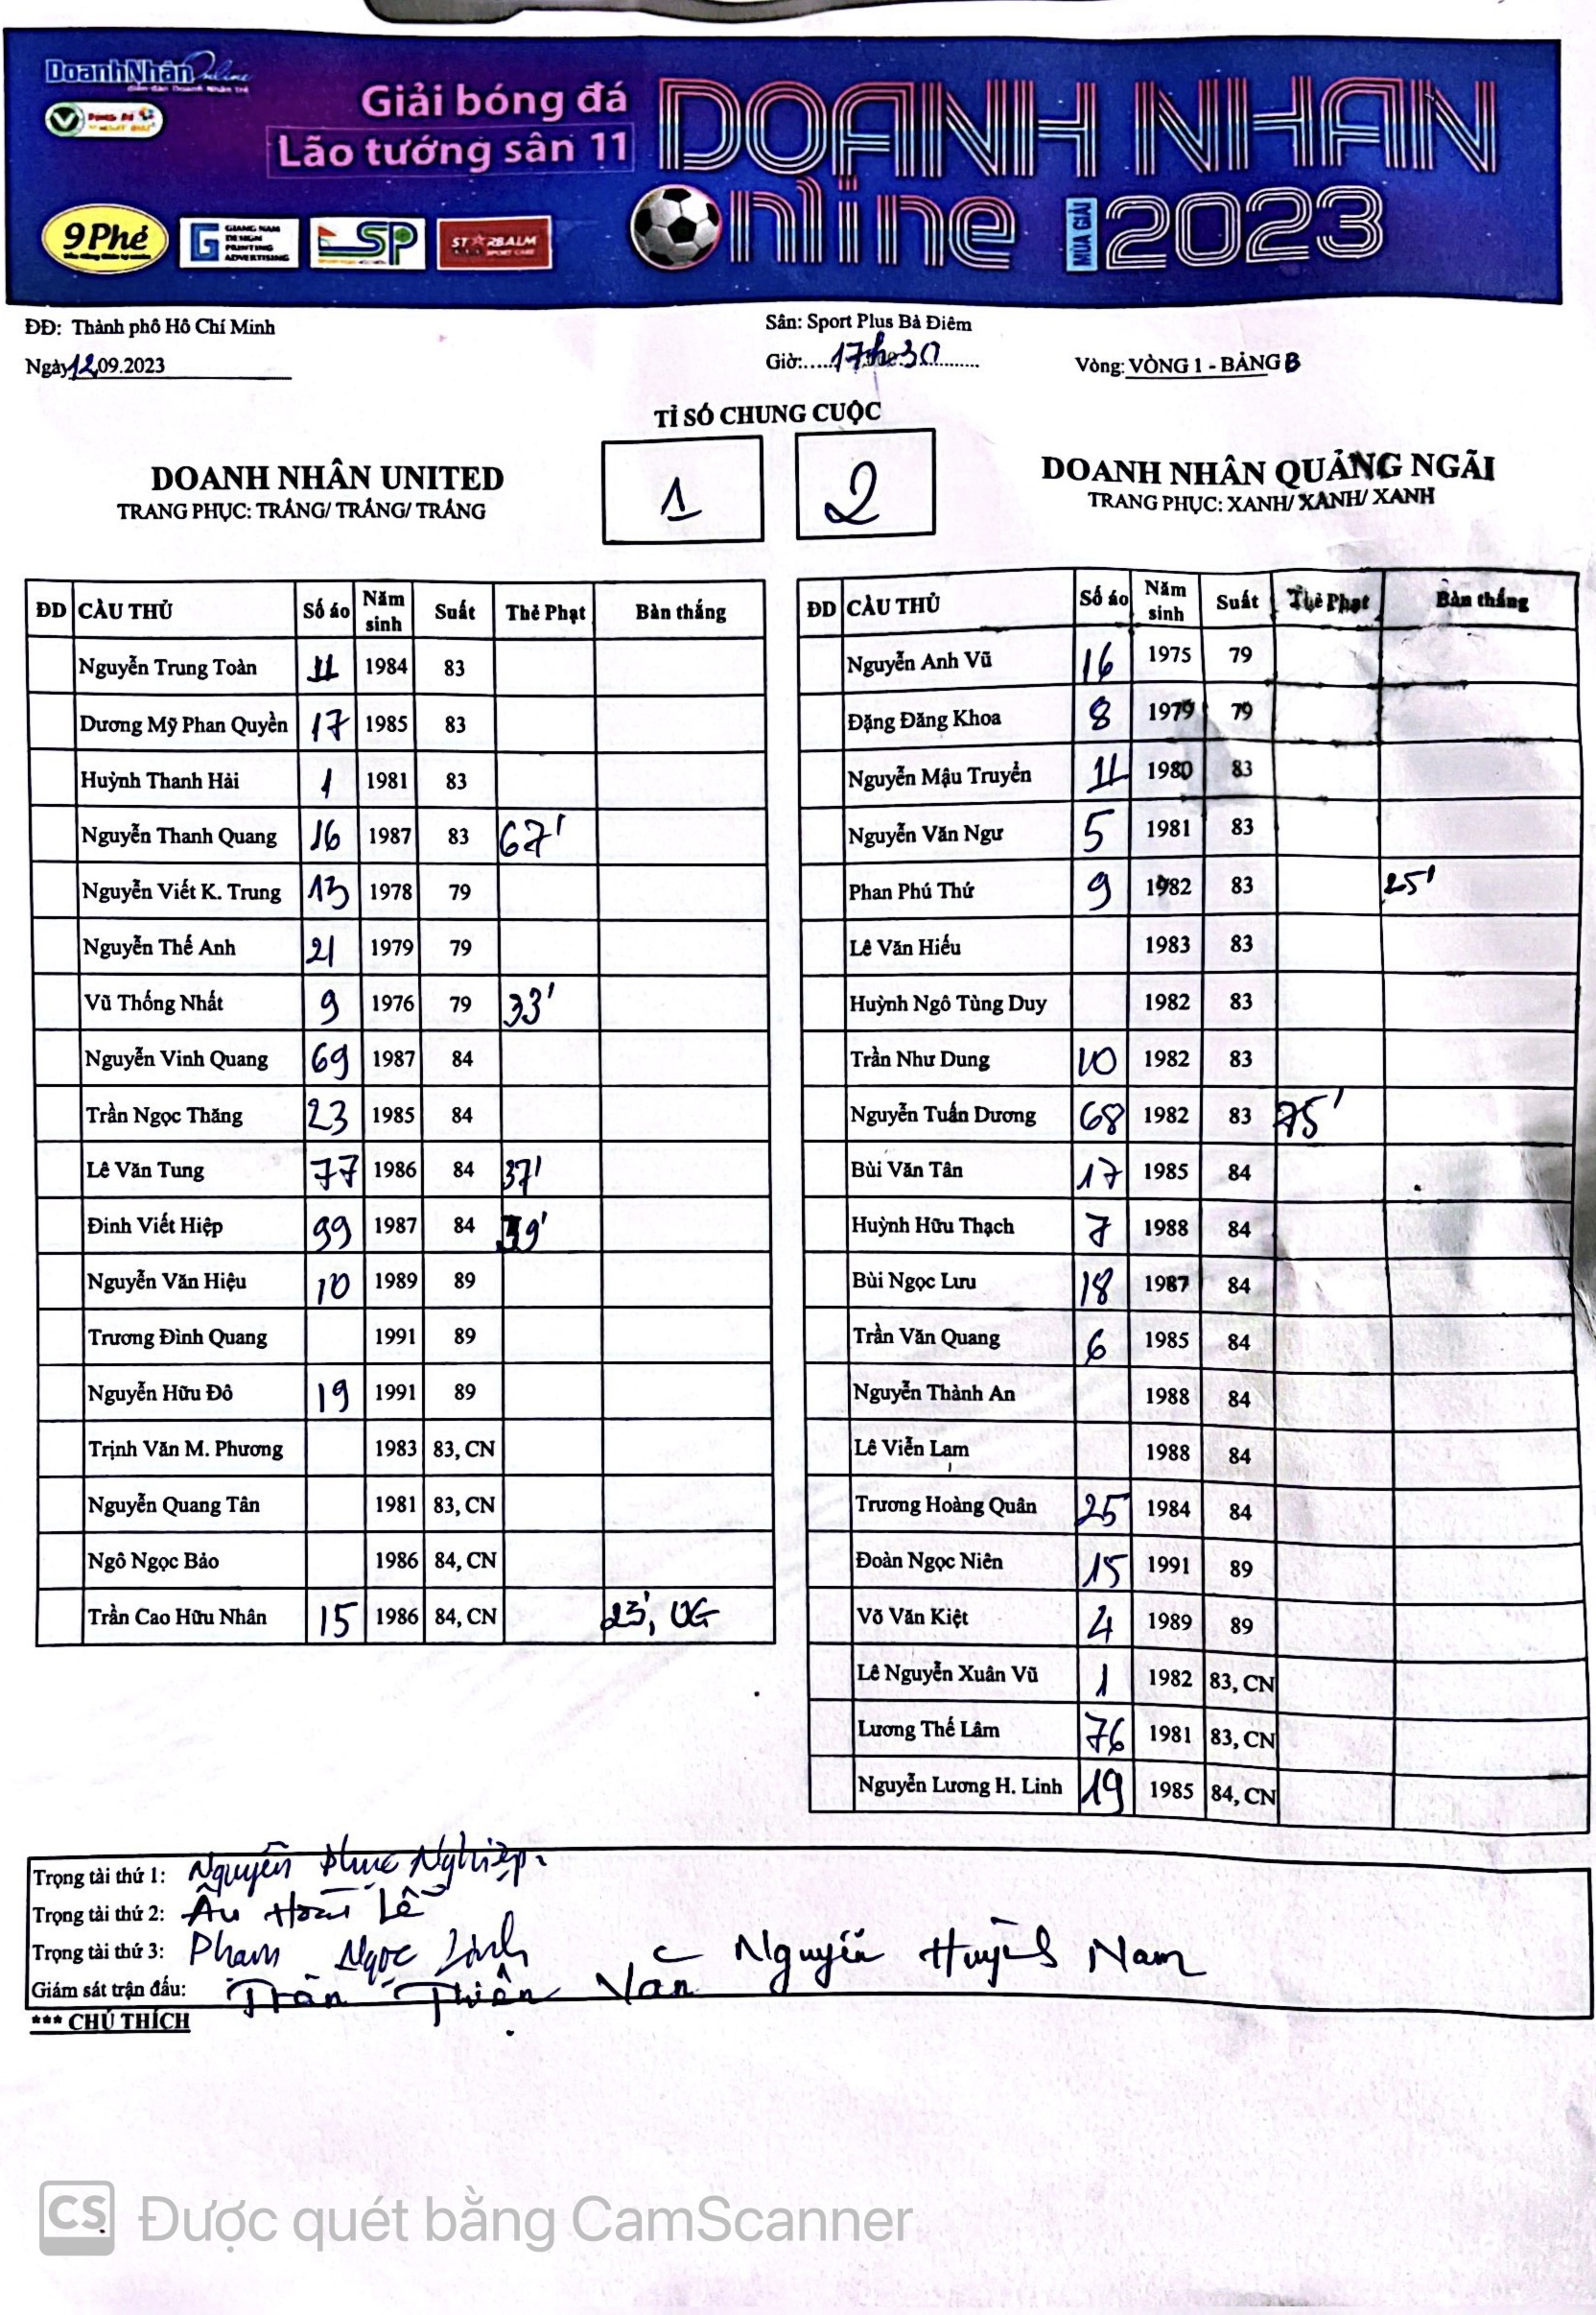 DoanhNhân Online
diễn đàn Doanh Nhân trẻ
Giải bóng đá
Lão tướng sân 11
DOANH NHÂN
Online MÙA GIẢI 2023
9Phẻ
GIANG NAM
DESIGN
PRINTING
ADVERTISING
SP
STARBALM
SPORT CARE
ĐĐ: Thành phố Hồ Chí Minh
Sân: Sport Plus Bà Điểm
Ngày 12.09.2023
Giờ: 17h30
Vòng: VÒNG 1 - BẢNG B
TỈ SỐ CHUNG CUỘC
DOANH NHÂN UNITED
TRANG PHỤC: TRẮNG/ TRẮNG/ TRẮNG
1 2
DOANH NHÂN QUẢNG NGÃI
TRANG PHỤC: XANH/ XANH/ XANH
ĐD CẦU THỦ Số áo Năm sinh Suất Thẻ Phạt Bàn thắng
Nguyễn Trung Toàn 11 1984 83
Dương Mỹ Phan Quyền 17 1985 83
Huỳnh Thanh Hải 1 1981 83
Nguyễn Thanh Quang 16 1987 83 67'
Nguyễn Viết K. Trung 13 1978 79
Nguyễn Thế Anh 21 1979 79
Vũ Thống Nhất 9 1976 79 33'
Nguyễn Vinh Quang 69 1987 84
Trần Ngọc Thăng 23 1985 84
Lê Văn Tung 77 1986 84 37'
Đinh Viết Hiệp 99 1987 84 39'
Nguyễn Văn Hiệu 10 1989 89
Trương Đình Quang 1991 89
Nguyễn Hữu Đô 19 1991 89
Trịnh Văn M. Phương 1983 83, CN
Nguyễn Quang Tân 1981 83, CN
Ngô Ngọc Bảo 1986 84, CN
Trần Cao Hữu Nhân 15 1986 84, CN 23', OG
ĐD CẦU THỦ Số áo Năm sinh Suất Thẻ Phạt Bàn thắng
Nguyễn Anh Vũ 16 1975 79
Đặng Đăng Khoa 8 1979 79
Nguyễn Mậu Truyền 11 1980 83
Nguyễn Văn Ngư 5 1981 83
Phan Phú Thứ 9 1982 83 25'
Lê Văn Hiếu 1983 83
Huỳnh Ngô Tùng Duy 1982 83
Trần Như Dung 10 1982 83
Nguyễn Tuấn Dương 68 1982 83 75'
Bùi Văn Tân 17 1985 84
Huỳnh Hữu Thạch 7 1988 84
Bùi Ngọc Lưu 18 1987 84
Trần Văn Quang 6 1985 84
Nguyễn Thành An 1988 84
Lê Viễn Lam 1988 84
Trương Hoàng Quân 25 1984 84
Đoàn Ngọc Niên 15 1991 89
Võ Văn Kiệt 4 1989 89
Lê Nguyễn Xuân Vũ 1 1982 83, CN
Lương Thế Lâm 76 1981 83, CN
Nguyễn Lương H. Linh 19 1985 84, CN
Trọng tài thứ 1: Nguyễn Phúc Nghiệp.
Trọng tài thứ 2: Âu Hoài Lễ
Trọng tài thứ 3: Phạm Ngọc Linh
Nguyễn Huỳnh Nam
Giám sát trận đấu: Trần Thiện Văn
*** CHÚ THÍCH
CS Được quét bằng CamScanner